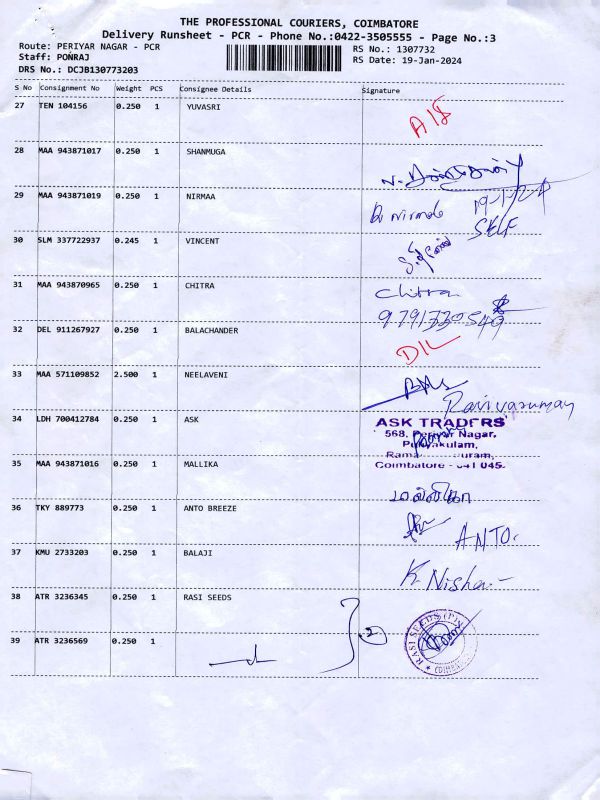 THE PROFESSIONAL COURIERS, COIMBATORE
Delivery Runsheet - PCR - Phone No.:0422-3505555 - Page No.:3
Route: PERIYAR NAGAR - PCR
RS No.: 1307732
Staff: PONRAJ
RS Date: 19-Jan-2024
DRS No.: DCJB130773203
S No Consignment No Weight PCS Consignee Details Signature
27 TEN 104156 0.250 1 YUVASRI
28 MAA 943871017 0.250 1 SHANMUGA
29 MAA 943871019 0.250 1 NIRMAA
19-1-24
30 SLM 337722937 0.245 1 VINCENT
SELF
31 MAA 943870965 0.250 1 CHITRA Chitra
32 DEL 911267927 0.250 1 BALACHANDER
D/L
33 MAA 571109852 2.500 1 NEELAVENI
34 LDH 700412784 0.250 1 ASK ASK TRADERS
568, Periyar Nagar,
Pulyakulam,
35 MAA 943871016 0.250 1 MALLIKA
Coimbatore - 641 045.
மல்லிகா
36 TKY 889773 0.250 1 ANTO BREEZE
ANTO.
37 KMU 2733203 0.250 1 BALAJI
38 ATR 3236345 0.250 1 RASI SEEDS
39 ATR 3236569 0.250 1
2
RASI SEEDS (P)